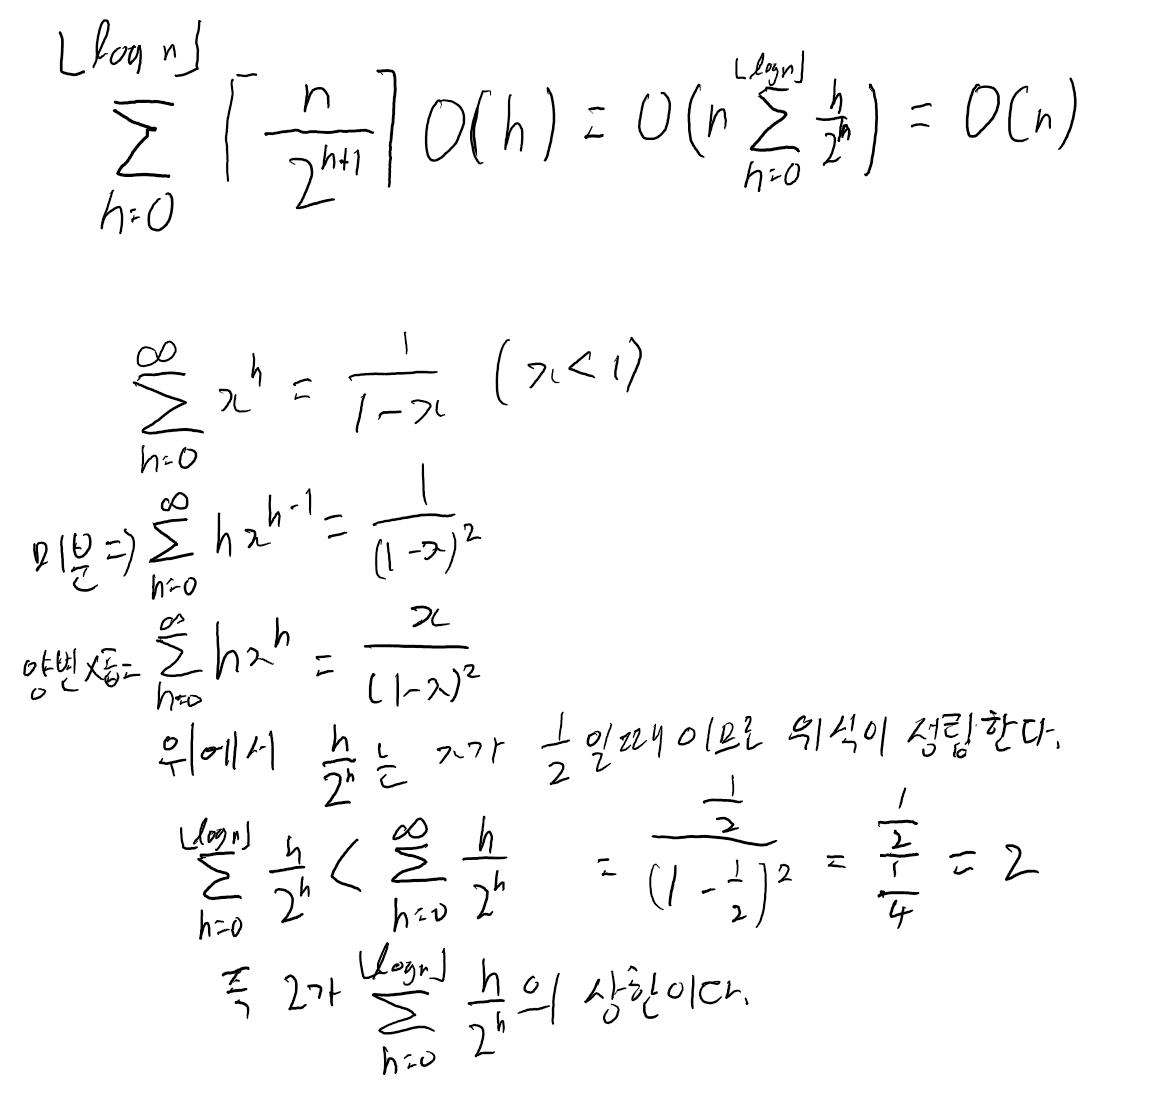 \sum_{h=0}^{⌊log n⌋} ⌈ \frac{n}{2^{h+1}} ⌉ O(h) = O(n \sum_{h=0}^{⌊log n⌋} \frac{h}{2^h}) = O(n)
\sum_{h=0}^{∞} x^h = \frac{1}{1-x} (x < 1)
미분 => \sum_{h=0}^{∞} hx^{h-1} = \frac{1}{(1-x)^2}
양변 x곱= \sum_{h=0}^{∞} hx^h = \frac{x}{(1-x)^2}
위에서 \frac{h}{2^h} 는 x가 \frac{1}{2} 일때 이므로 위식이 성립한다.
\sum_{h=0}^{⌊log n⌋} \frac{h}{2^h} < \sum_{h=0}^{∞} \frac{h}{2^h} = \frac{\frac{1}{2}}{(1-\frac{1}{2})^2} = \frac{\frac{1}{2}}{\frac{1}{4}} = 2
즉 2가 \sum_{h=0}^{⌊log n⌋} \frac{h}{2^h} 의 상한이다.